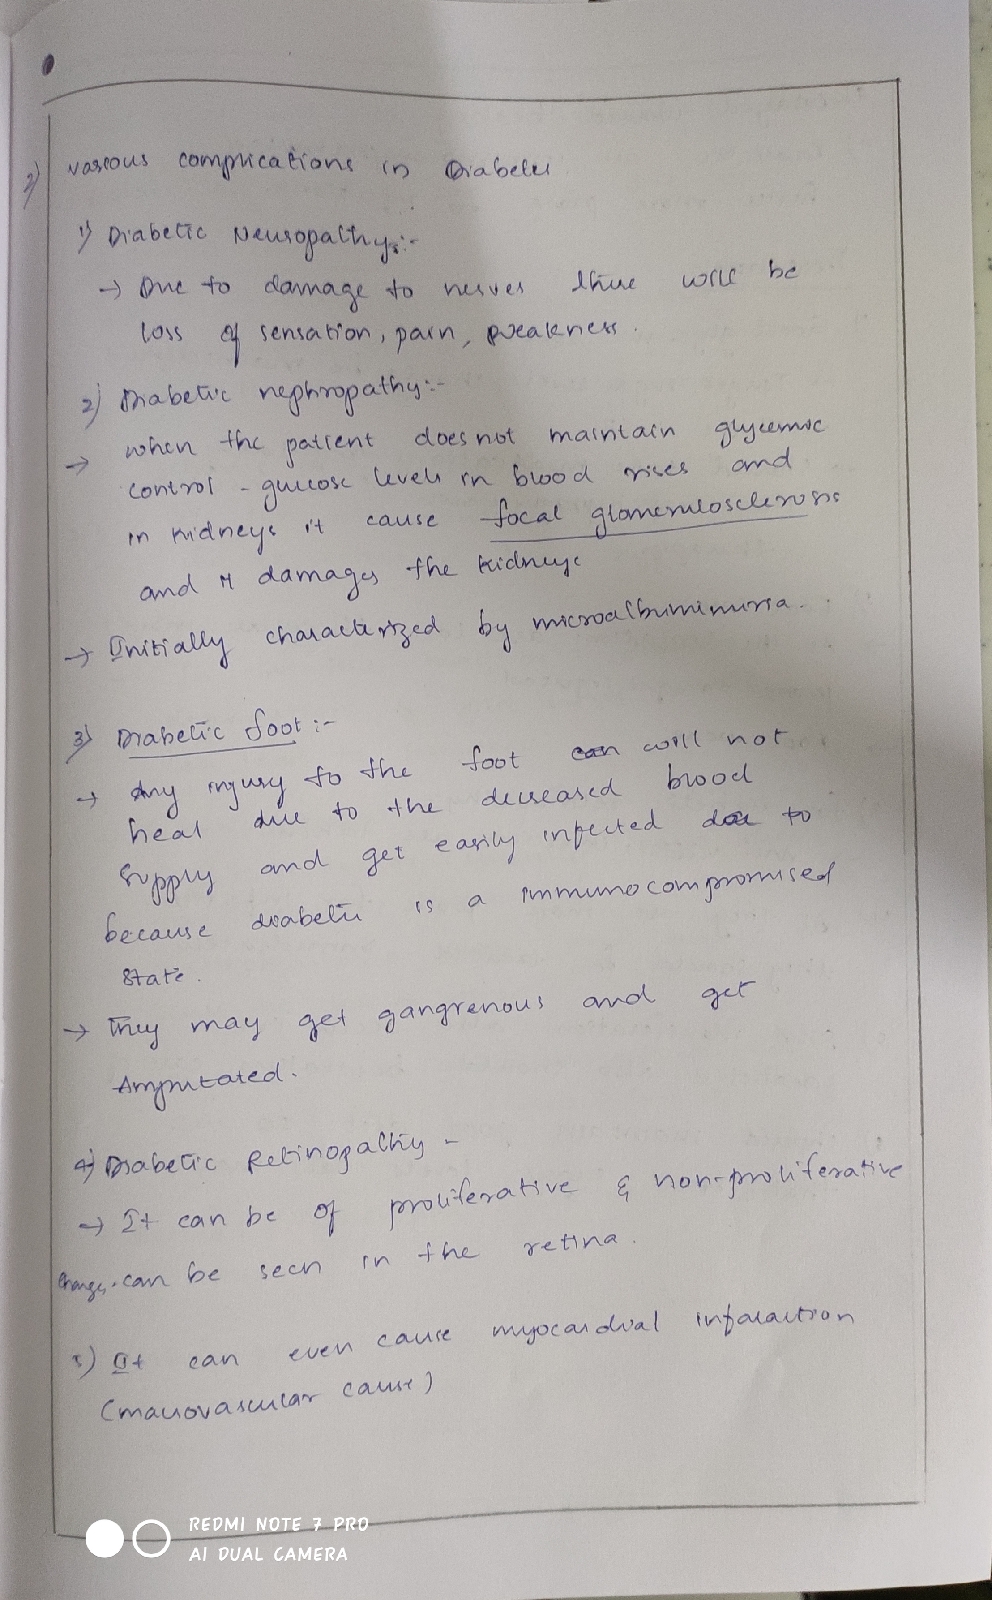 2) various complications in Diabetes
1) Diabetic Neuropathy:-
→ Due to damage to nerves there will be
loss of sensation, pain, weakness.
2) Diabetic nephropathy:-
→ when the patient does not maintain glycemic
control - glucose levels in blood rises and
in kidneys it cause focal glomerulosclerosis
and it damages the kidneys
→ Initially characterized by microalbuminuria.
3) Diabetic foot:-
→ Any injury to the foot can will not
heal due to the decreased blood
supply and get easily infected due to
because diabetes is a immunocompromised
state.
→ They may get gangrenous and get
Amputated.
4) Diabetic Retinopathy -
→ It can be of proliferative & non-proliferative
changes can be seen in the retina.
5) It can even cause myocardial infaraction
(macrovascular cause)
REDMI NOTE 7 PRO
AI DUAL CAMERA